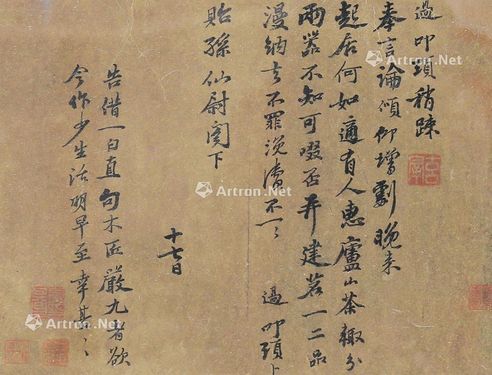 過叩頭稍疎
奉言論傾仰增劇晚來
起居何如適有人惠廬山茶輒分
兩器不知可啜否并建茗一二品
漫納去不罪浼瀆不一〻 過叩頭上
貽孫仙尉閣下
十七日
告借一白直句木匠嚴九者欲
令作少生活明早至幸甚〻
Artron.Net
Artron.Net
Artron.Net
Artron.Net
Artron.Net